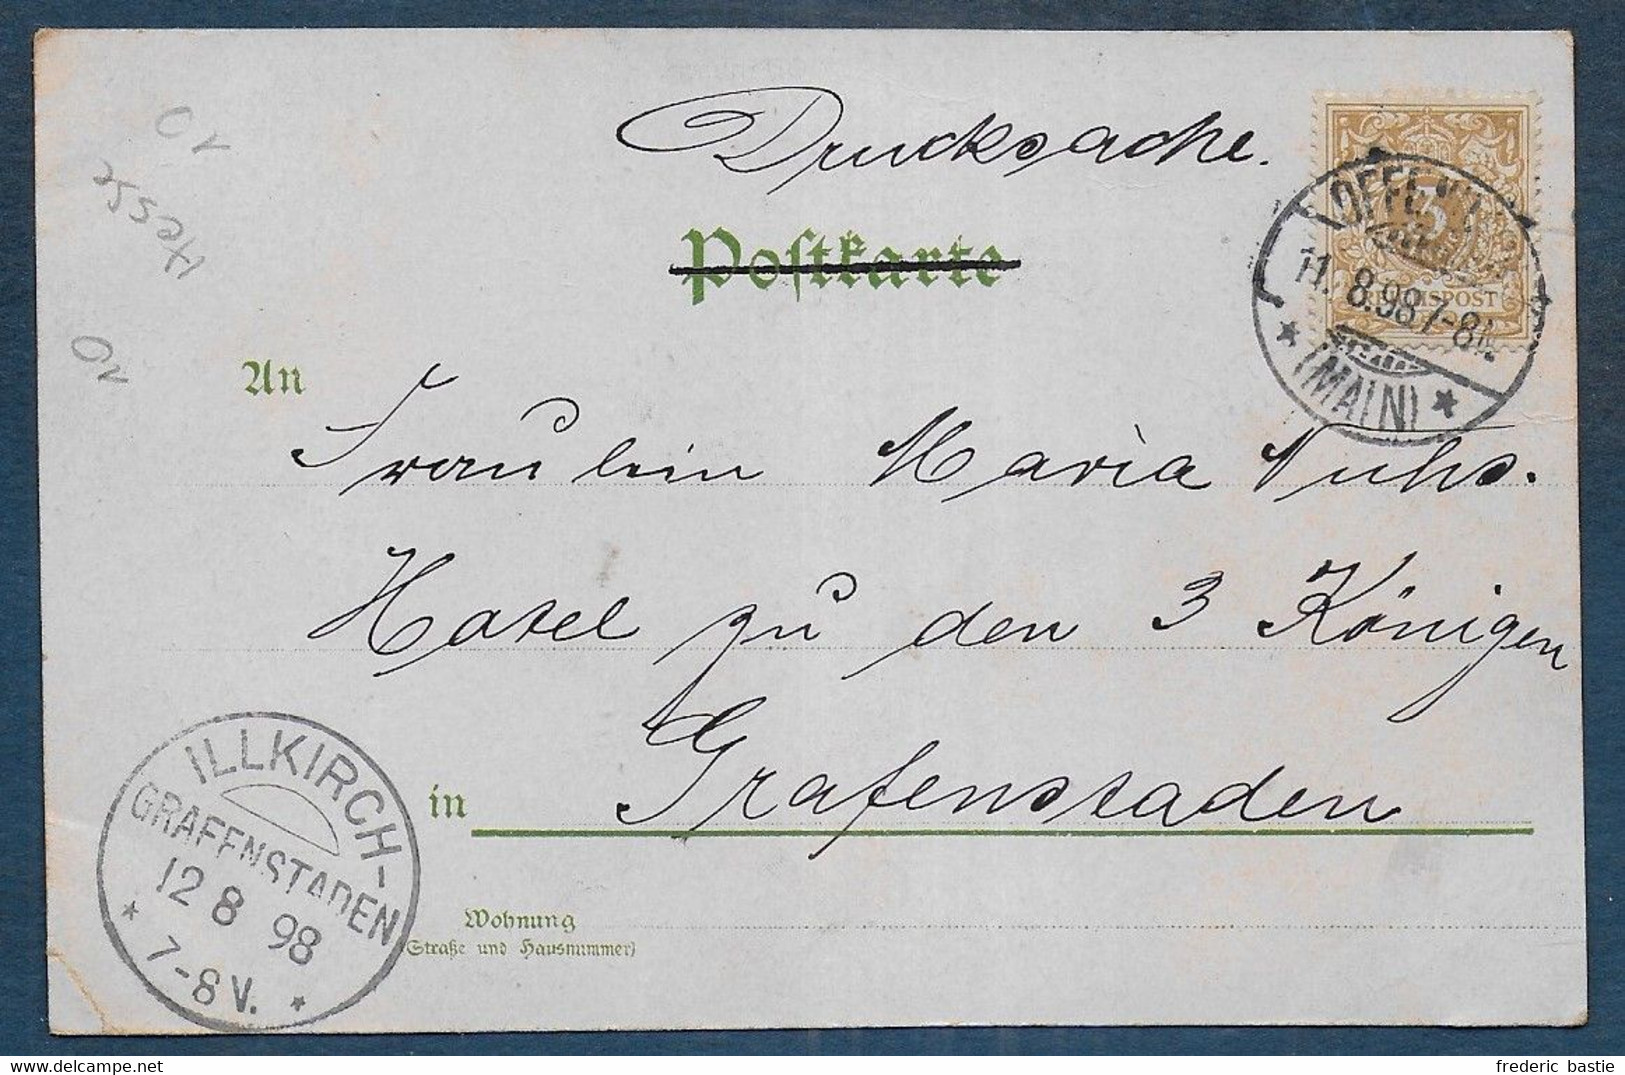 Drucksache.
Postkarte
OFFENB
11.8.98 7-8N.
(MAIN)
3
REICHSPOST
Hesse
An
Fräulein Maria Nuhs.
Hotel zu den 3 Königen
in Grafenstaden
ILLKIRCH-
GRAFFENSTADEN
12 8 98
7-8 V.
Wohnung
(Straße und Hausnummer)
frederic bastie